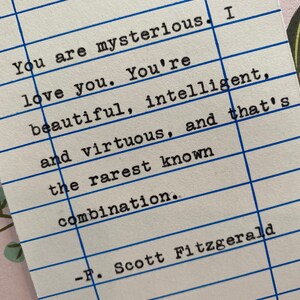 You are mysterious. I
love you. You're
beautiful, intelligent,
and virtuous, and that's
the rarest known
combination.
-F. Scott Fitzgerald